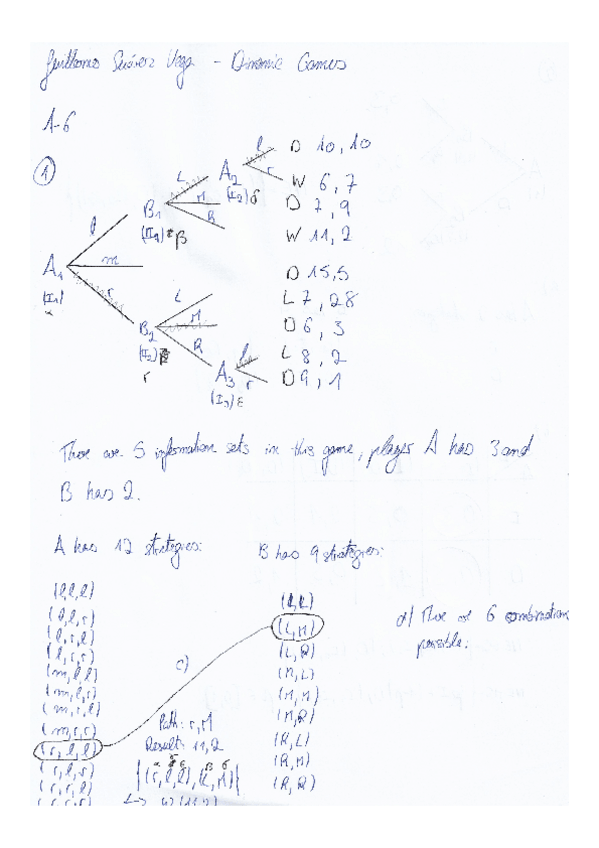 Guillermo Suárez Vega - Dinamic Games
1-6
1
l D 10, 10
L A2 r W 6, 7
B1 M (I2) δ D 7, 9
(I1) β R W 11, 2
l
A1 m D 15,5
(I1) r L L 7, 28
α M D 6, 3
B2 R l L 8, 2
(I2) A3 r D 9, 1
r (I3) ε
There are 5 information sets in this game, player A has 3 and
B has 2.
A has 12 strategies: B has 9 strategies:
(l,l,l) (L,L)
(l,l,r) (L,M) d) There are 6 combinations
(l,r,l) (L,R) possible:
(l,r,r) c) (M,L)
(m,l,l) (M,M)
(m,l,r) (M,R)
(m,r,l) (R,L)
(m,r,r) Path: r,M (R,M)
(r,l,l) Result: 11,2 (R,R)
(r,l,r) α δ ε β σ
(r,r,l) {(r,l,l),(L,M)}
(r,r,r) ↳ W (11,2)